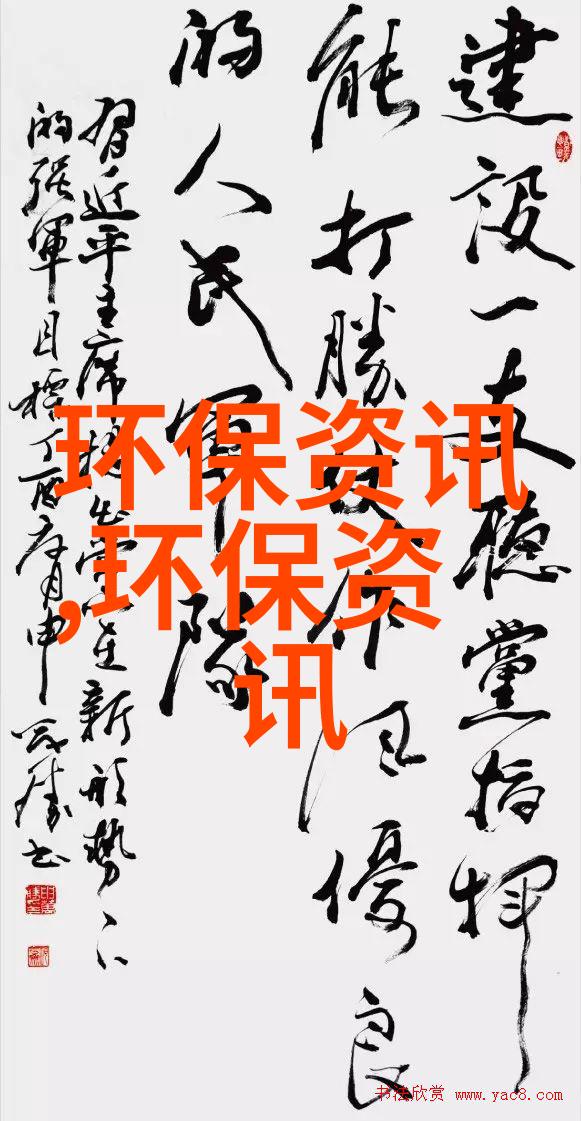 建設一支聽黨指揮
能打勝仗作风優良
的人民軍隊
習近平主席提出黨在新形勢下
的强軍目標丁酉月申万勝书
环保资讯
,环保资
讯
书法欣赏 www.yac8.com